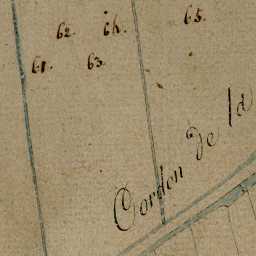 62. 64. 65.
61. 63.
Cordon de la